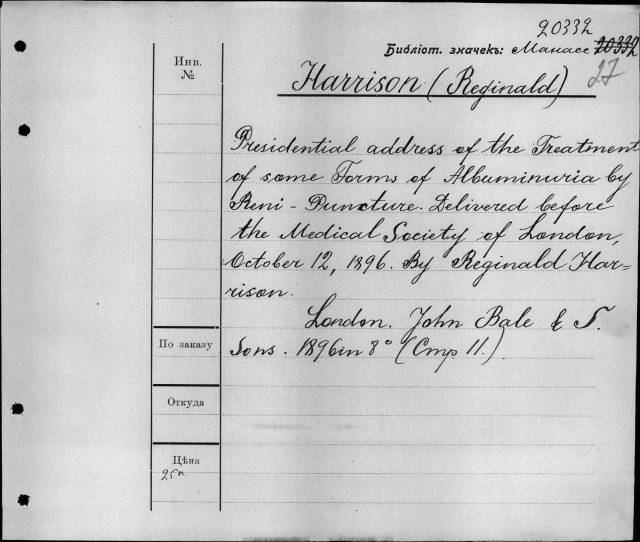 20332
Библіот. значекъ: Манасе 20332
27
Инв.
№
Harrison (Reginald)
Presidential address of the Treatment
of some Forms of Albuminuria by
Reni-Puncture. Delivered before
the Medical Society of London,
October 12, 1896. By Reginald Har=
rison.
London. John Bale & S.
Sons. 1896 in 8° (Стр 11.)
По заказу
Откуда
Цѣна
25к